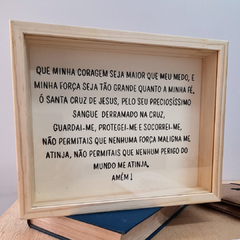 QUE MINHA CORAGEM SEJA MAIOR QUE MEU MEDO, E
MINHA FORÇA SEJA TÃO GRANDE QUANTO A MINHA FÉ.
Ó SANTA CRUZ DE JESUS, PELO SEU PRECIOSÍSSIMO
SANGUE DERRAMADO NA CRUZ,
GUARDAI-ME, PROTEGEI-ME E SOCORREI-ME,
NÃO PERMITAIS QUE NENHUMA FORÇA MALIGNA ME
ATINJA, NÃO PERMITAIS QUE NENHUM PERIGO DO
MUNDO ME ATINJA.
AMÉM!